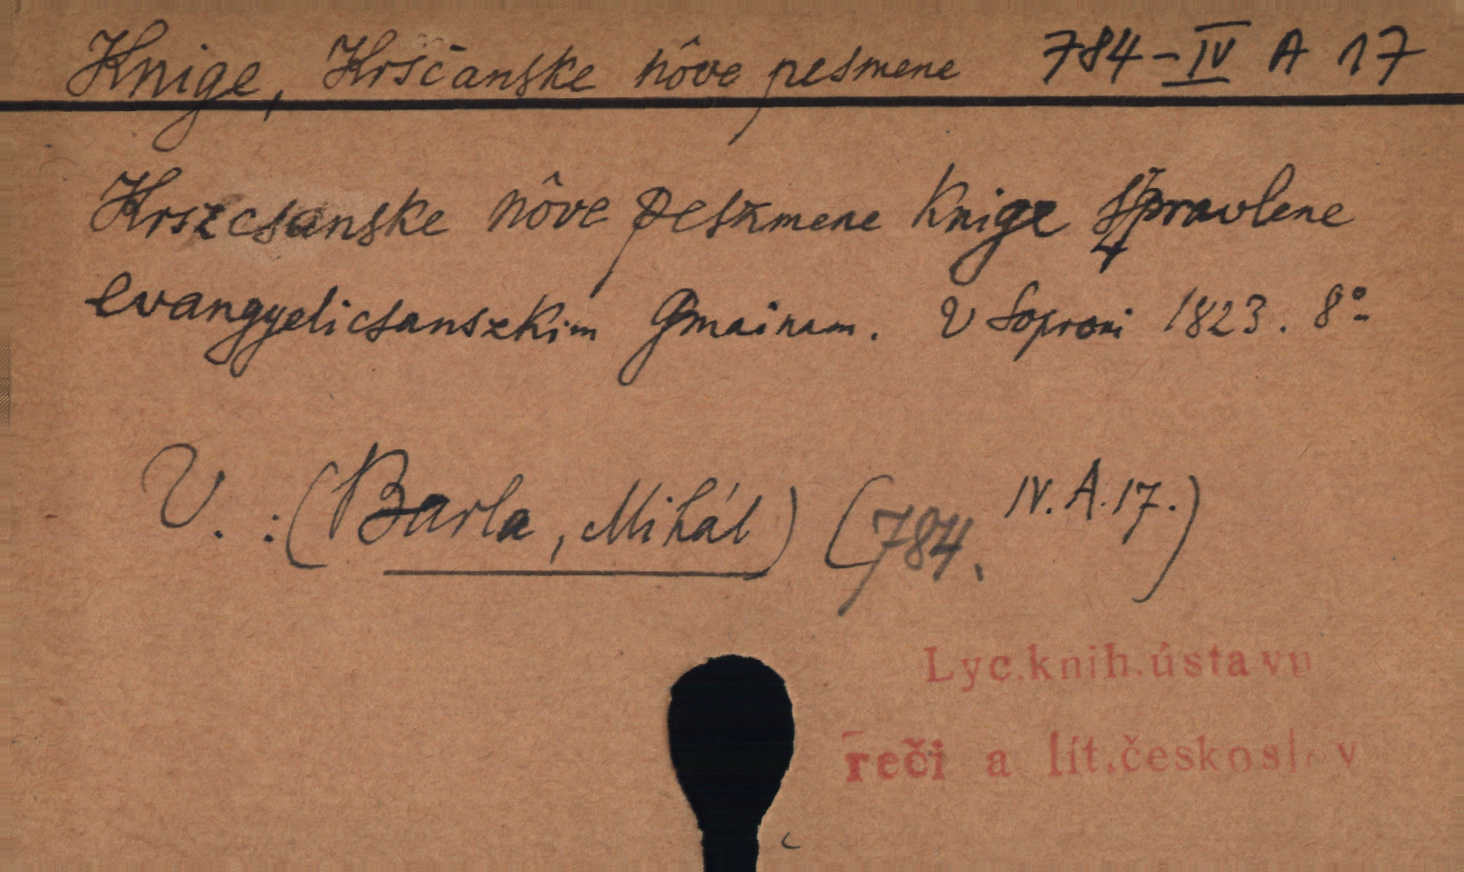 Knige, Krsčanske nôve pesmene 784-IV A 17
Krszcsanske nôve peszmene knige szpravlene
evangyelicsanszkim gmainam. V Soproni 1823. 8°
V. : (Barla, Mihál) (784. IV. A. 17.)
Lyc.knih.ústavu
řeči a lít.českosl v